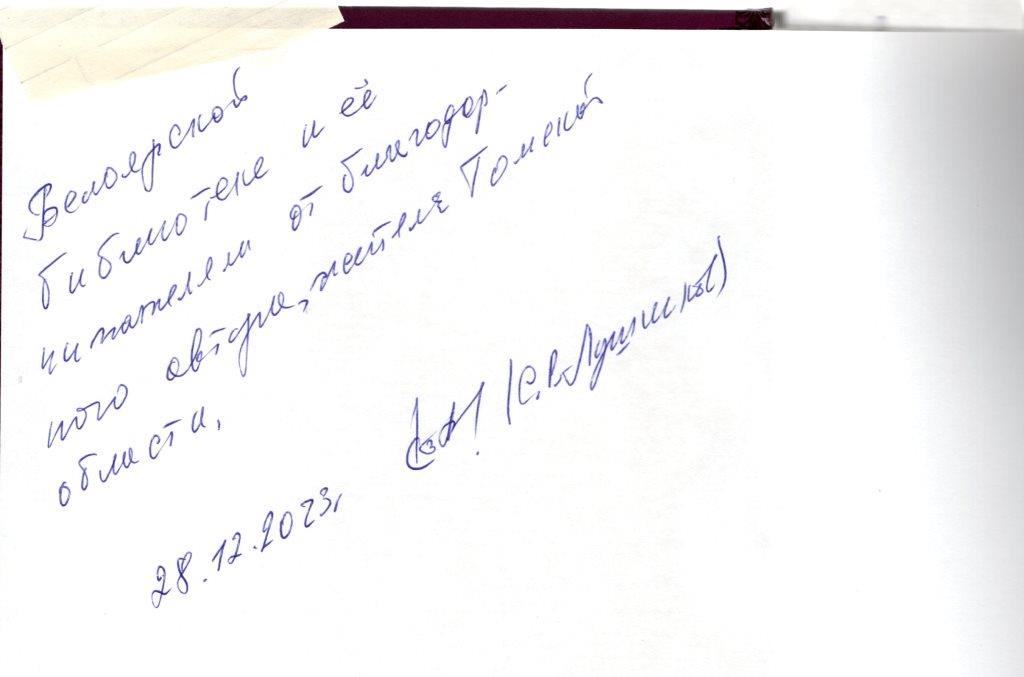 Белоярской
библиотеке и её
читателям от благодар-
ного автора, жителя Томской
области.
28.12.2023г. (С.В. Лушников)